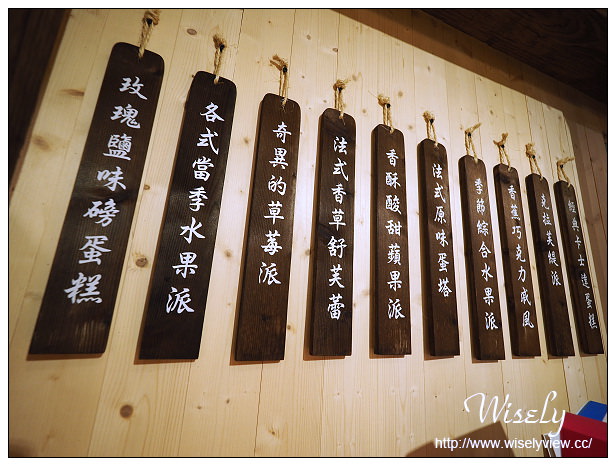 玫瑰鹽味磅蛋糕
各式當季水果派
奇異的草莓派
法式香草舒芙蕾
香酥酸甜蘋果派
法式原味蛋塔
季節綜合水果派
香蕉巧克力戚風
克拉芙緹派
經典卡士達蛋糕
Wisely
http://www.wiselyview.cc/